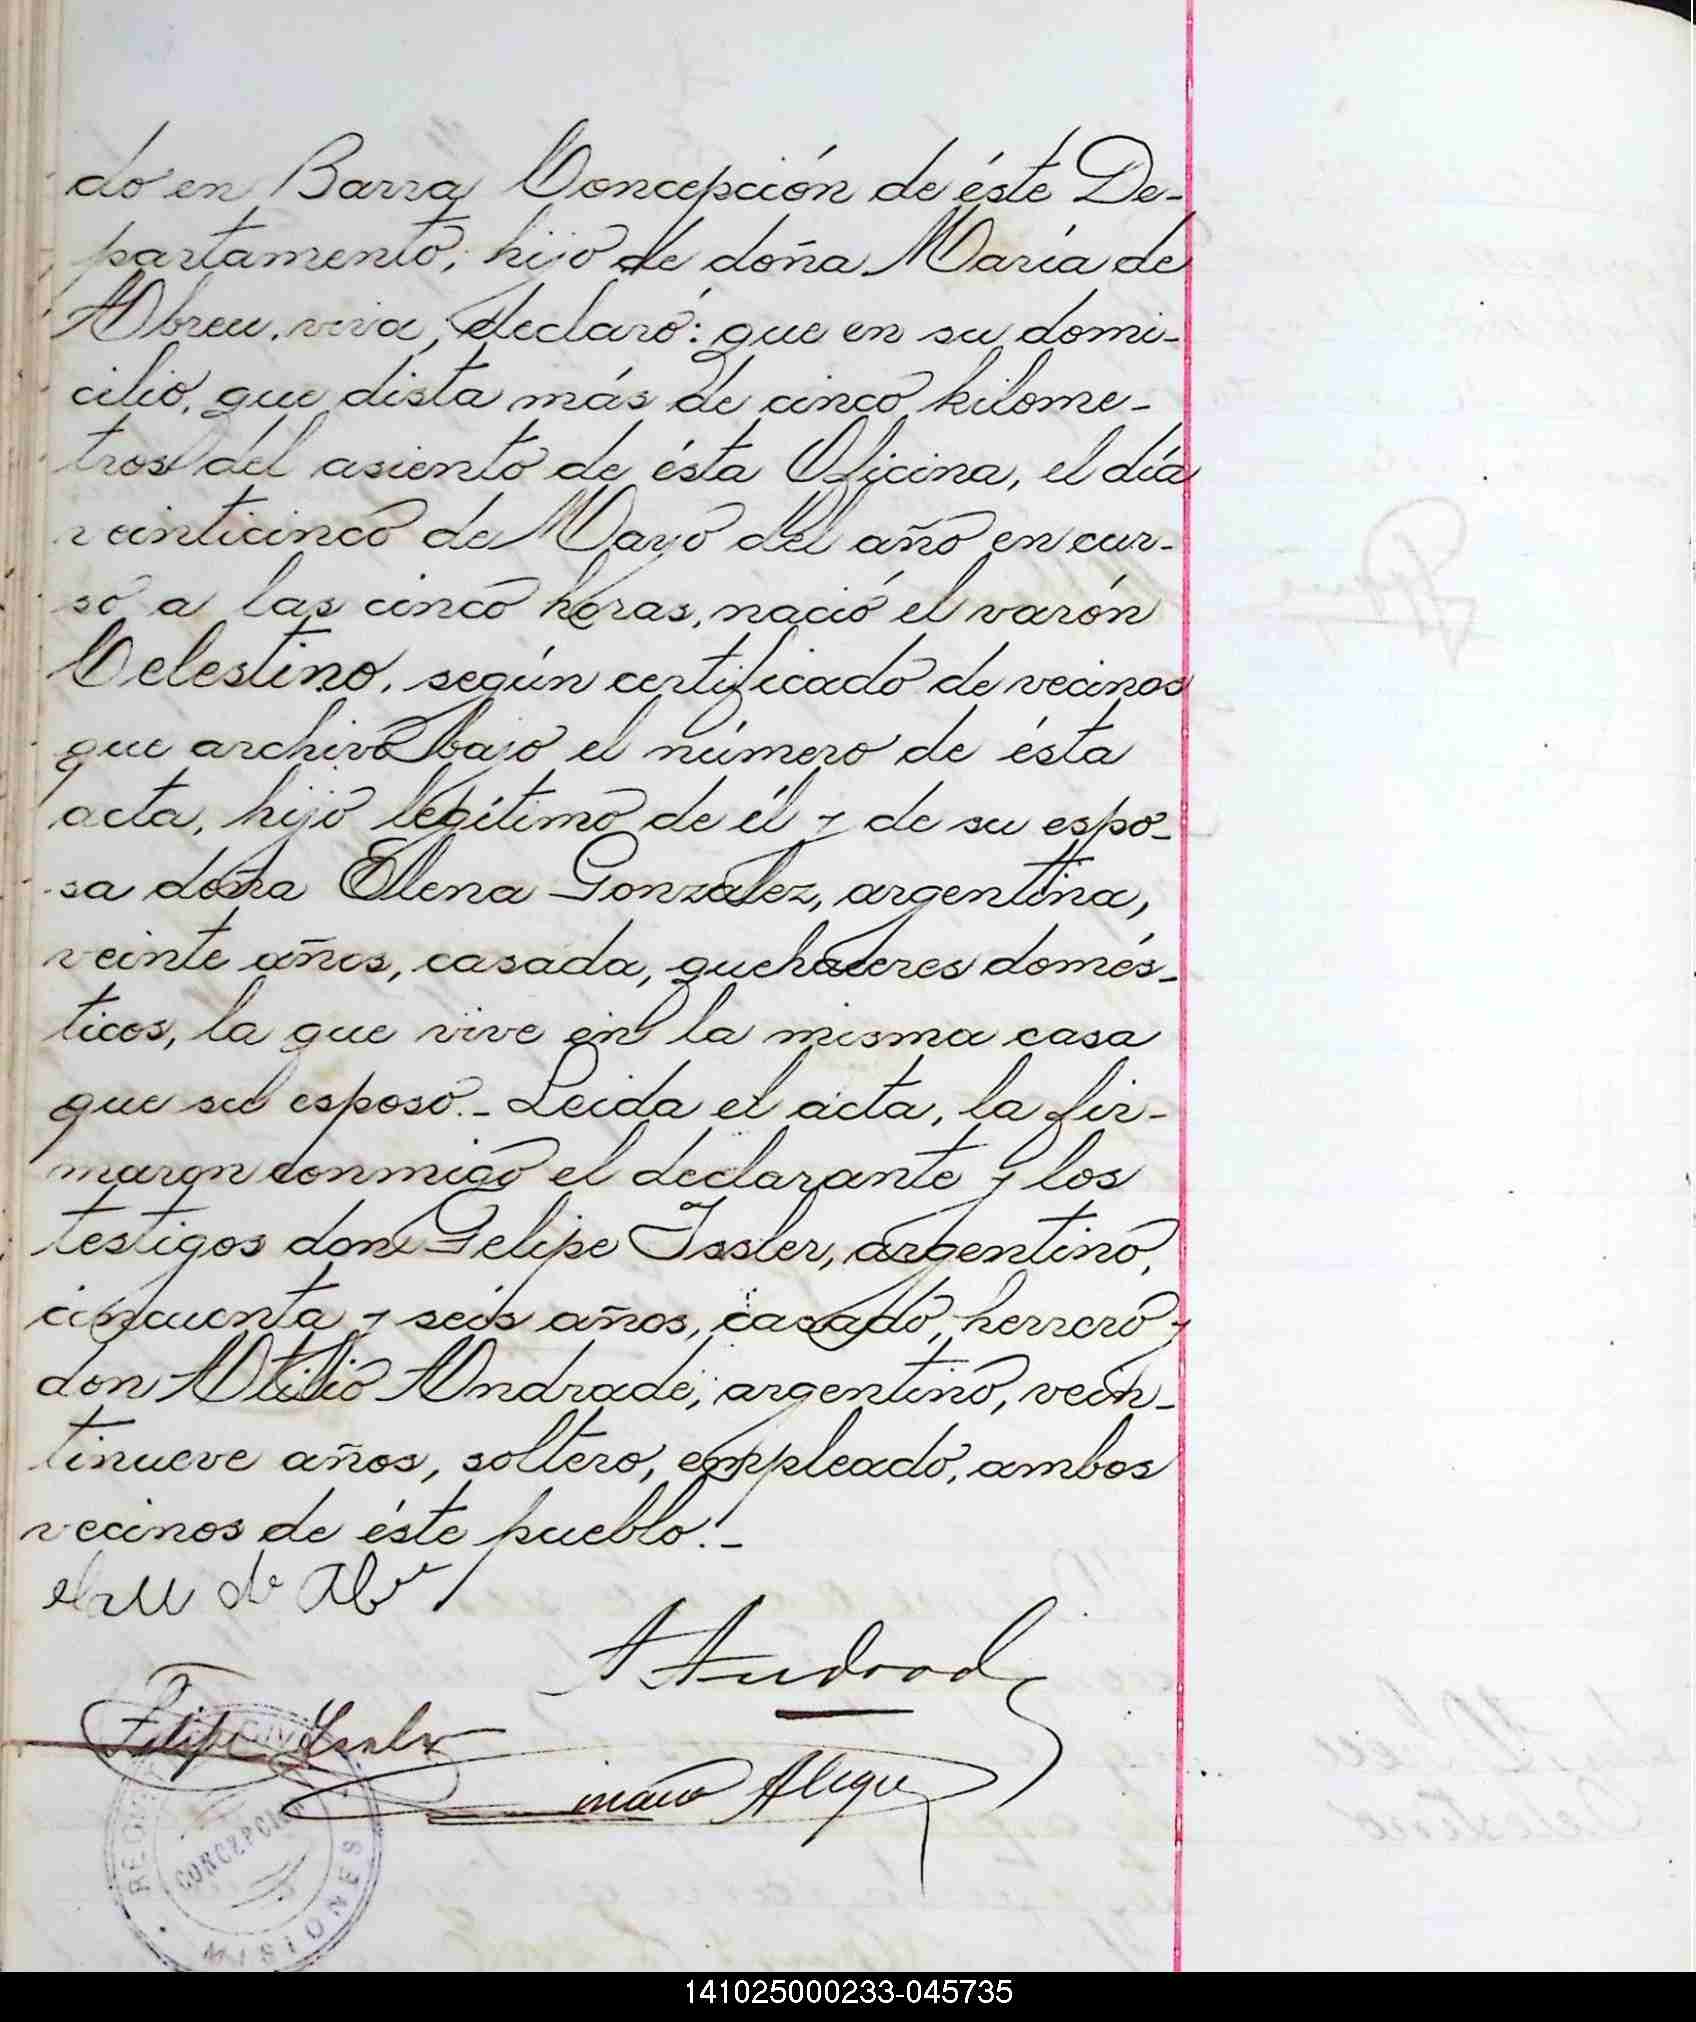 do en Barra Concepción de éste De-
partamento, hijo de doña María de
Abreu, viva, declaró: que en su domi-
cilio, que dista más de cinco kilome-
tros del asiento de ésta Oficina, el día
veinticinco de Mayo del año en cur-
so a las cinco horas, nació el varón
Celestino, según certificado de vecinos
que archivo bajo el número de ésta
acta, hijo legítimo de él y de su espo-
sa doña Elena Gonzalez, argentina,
veinte años, casada, quehaceres domés-
ticos, la que vive en la misma casa
que su esposo.- Leida el acta, la fir-
maron conmigo el declarante y los
testigos don Felipe Issler, argentino,
cincuenta y seis años, casado, herrero y
don Atilio Andrade, argentino, vein-
tinueve años, soltero, empleado, ambos
vecinos de éste pueblo.-
A Andrade
Felipe Issler
Alegre
CONCEPCION
MISIONES
141025000233-045735